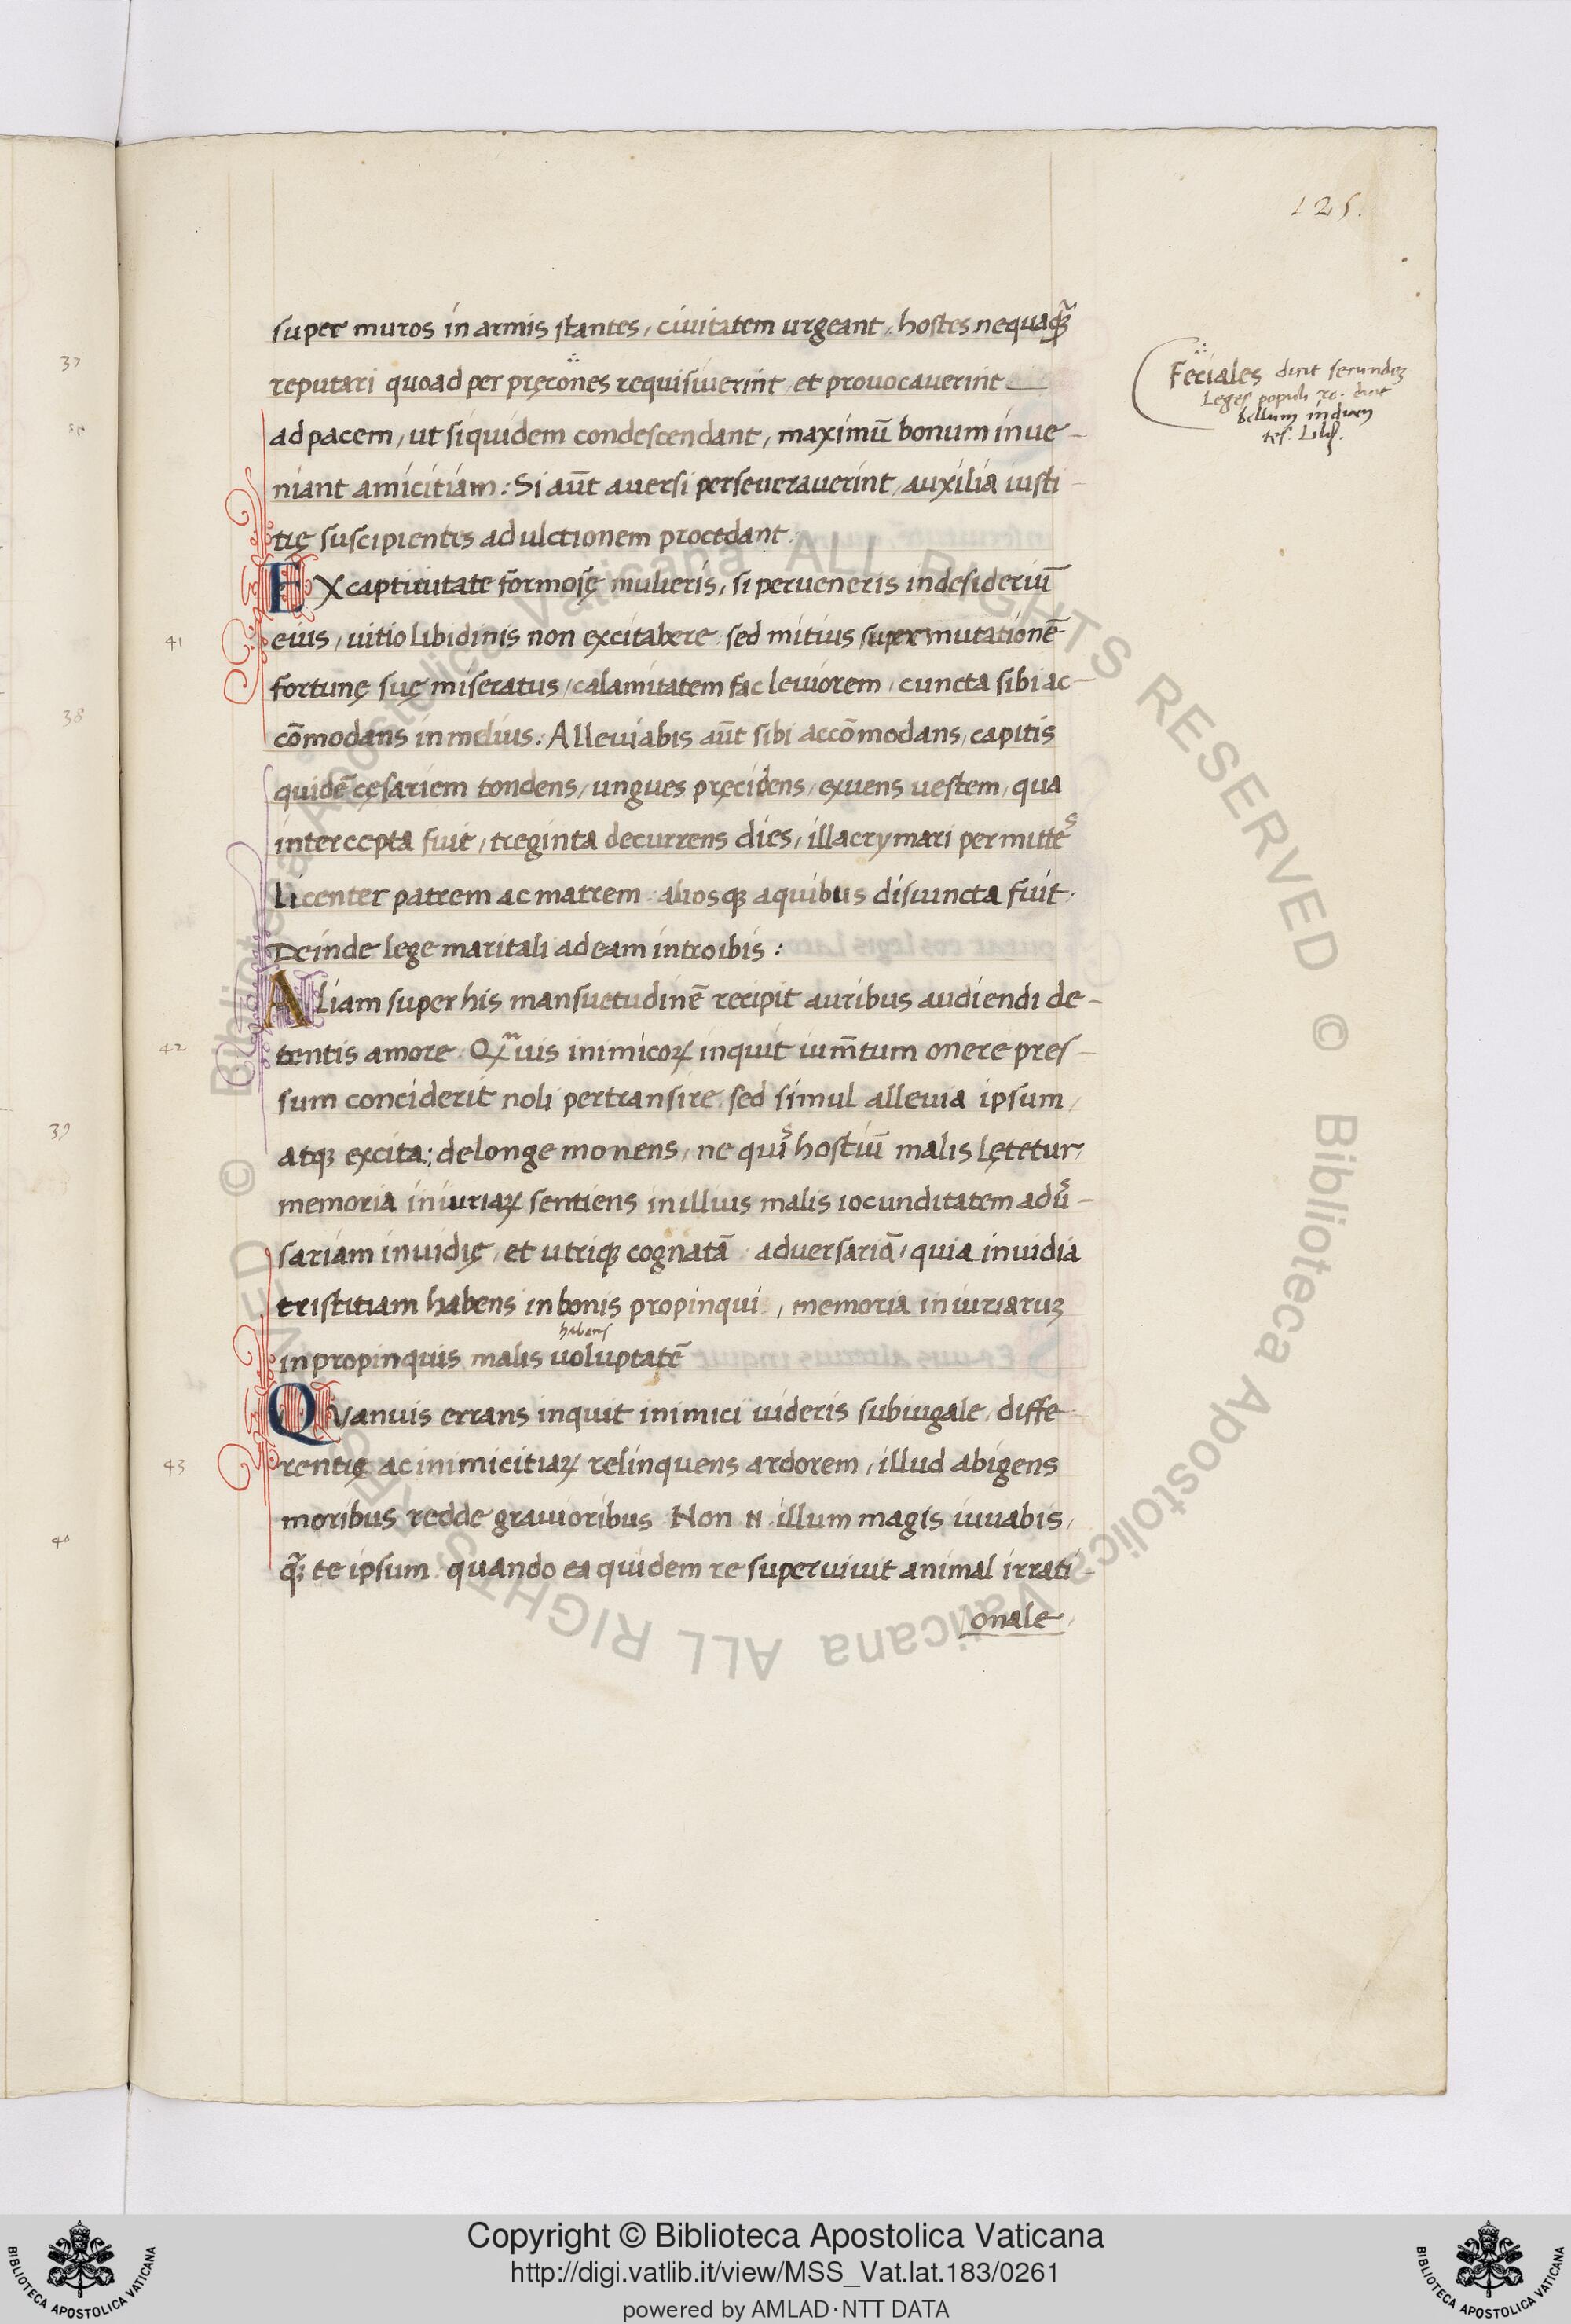 125.
super muros in armis stantes, ciuitatem urgeant, hostes nequaq̃ȝ
reputari quoad per pręcones requisiuerint, et prouocauerint
ad pacem, ut siquidem condescendant, maximū bonum inue-
niant amicitiam: Si aūt auersi perseuerauerint, auxilia iusti-
tię suscipientes ad ulctionem procedant.
EX captiuitate formosę mulieris, si perueneris in desideriū
eius, uitio libidinis non excitabere. sed mitius super mutationē
fortunę suę miseratus, calamitatem fac leuiorem, cuncta sibi ac-
cōmodans in melius. Alleuiabis aūt sibi accōmodans, capitis
quidē cęsariem tondens, ungues pręcidens, exuens uestem, qua
intercepta fuit, treginta decurrens dies, illacrymari permittēs
licenter patrem ac matrem. aliosqȝ a quibus disiuncta fuit.
Deinde lege maritali ad eam introibis:
ALiam super his mansuetudinē recipit auribus audiendi de-
tentis amore. Qȝuis inimicoꝝ inquit ium̄tum onere pres-
sum conciderit noli pertransire. sed simul alleuia ipsum,
atqȝ excita; de longe monens, ne quis hostiū malis lętetur,
memoria iniuriaꝝ sentiens in illius malis iocunditatem adu̾-
sariam inuidię, et utriqȝ cognatā. aduersariā, quia inuidia
tristitiam habens in bonis propinqui, memoria iniuriaruȝ
habens
in propinquis malis uoluptatē
QVanuis errans inquit inimici uideris subiugale, diffe-
rentię ac inimicitiaꝝ relinquens ardorem, illud abigens
moribus redde grauioribus. Non .N. illum magis iuuabis,
q̃ȝ te ipsum. quando ea quidem re superuiuit animal irrati-
onale
Feciales dicit secundeȝ
Leges populi ro.
bellum indicen
tes.
41
42
43
37
38
39
40
Copyright © Biblioteca Apostolica Vaticana
http://digi.vatlib.it/view/MSS_Vat.lat.183/0261
powered by AMLAD·NTT DATA
BIBLIOTECA APOSTOLICA VATICANA
BIBLIOTECA APOSTOLICA VATICANA
© Biblioteca Apostolica Vaticana ALL RIGHTS RESERVED © Biblioteca Apostolica Vaticana ALL RIGHTS RESERVED